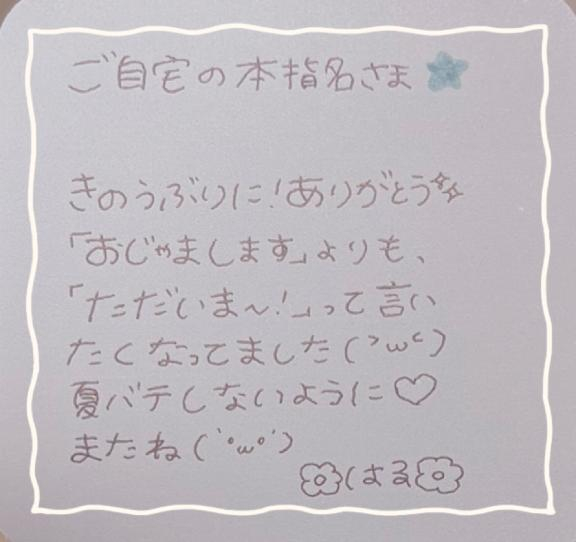 ご自宅の本指名さま
きのうぶりに!ありがとう✨
「おじゃまします」よりも、
「ただいま〜!」って言い
たくなってました(˃ω˂)
夏バテしないように♡
またね(`•ω•´)
はる